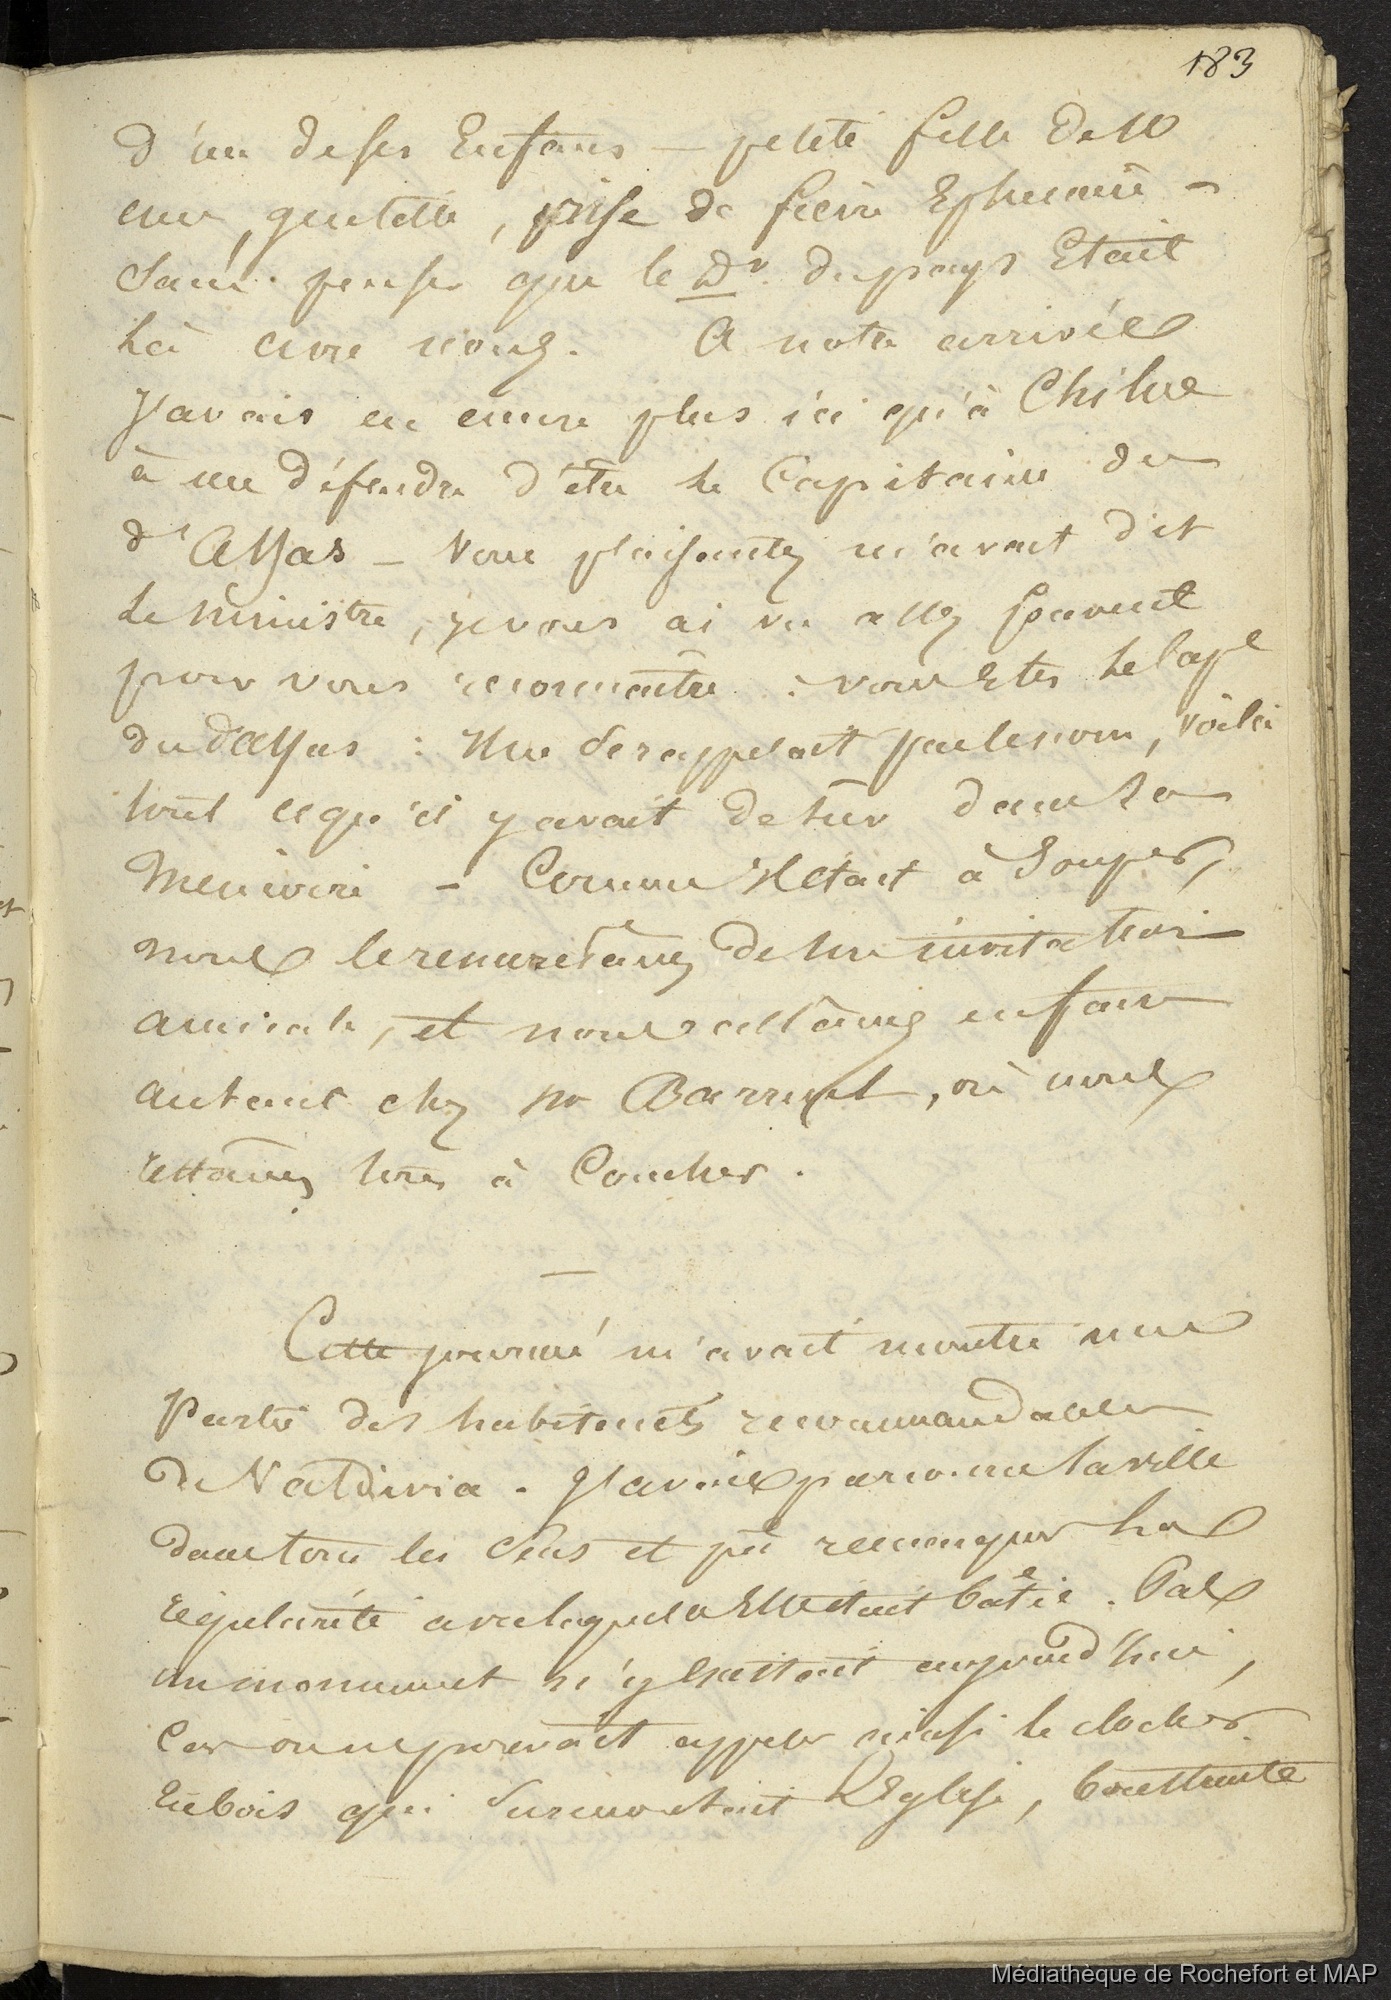 183
d'un de ses Enfans — petite fille de 10
ans, gentille, prise de fièvre Ephémère —
Sans penser que le Dr. du pays Etait
là avec nous. A notre arrivée
J'avais eu encore plus ici qu'à Chiloé
à me défendre d'être le Capitaine du
d'Assas — Vous plaisantez m'avait dit
le Ministre, je vous ai vu assez souvent
pour vous reconnaître : vous Etes le Cape
du d'Assas : Il ne se rappelait pas le nom, voilà
tout ce qu'il y avait de sûr dans sa
Mémoire — Comme Il était à Souper,
nous le remerciâmes de son invitation
amicale, et nous allâmes en faire
autant chez Mr Barruel, où nous
restâmes tous à Coucher.
—
Cette journée m'avait montré une
Partie des habitants recommandables
de Valdivia. J'avais parcouru la ville
dans tous les sens et pu remarquer la
régularité avec laquelle Elle était bâtie. Pas
un monument n'y Existait aujourd'hui,
Car on ne pouvait appeler ainsi le clocher
En bois qui surmontait L'Eglise, Construite
Médiathèque de Rochefort et MAP